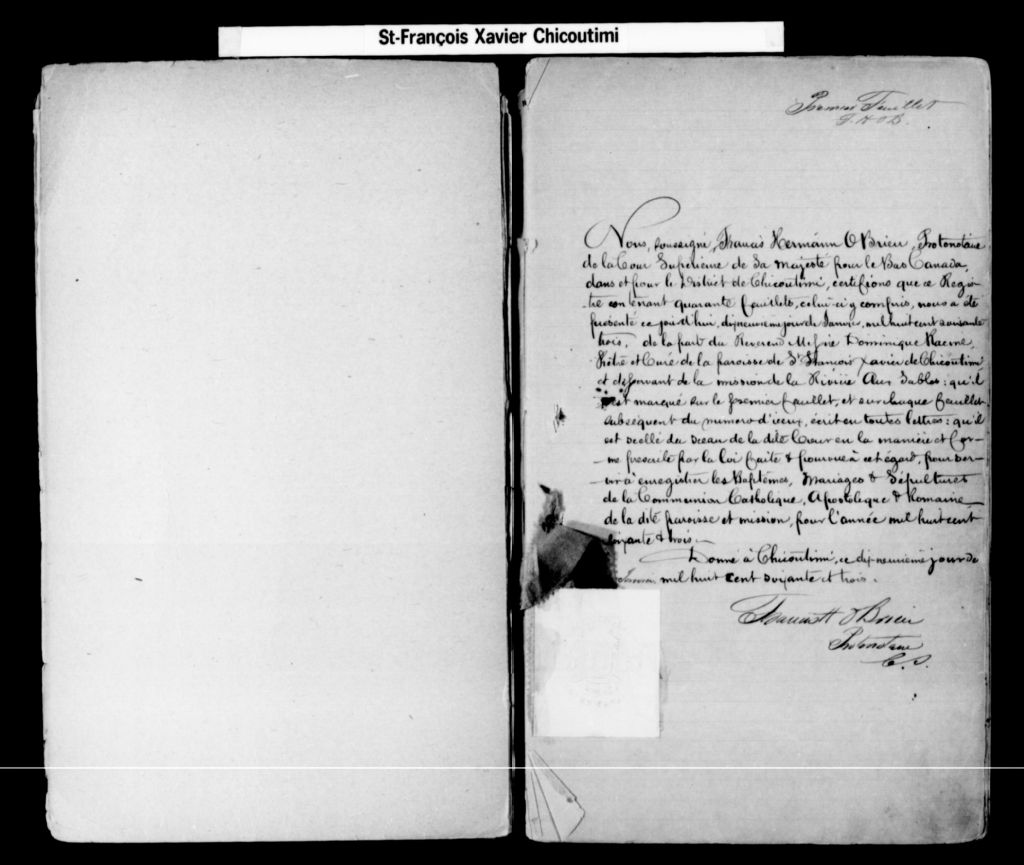 St-François Xavier Chicoutimi
Premier Feuillet
F. H. O'B.
Nous, soussigné, Francis Hermann O'Brien, Protonotaire
de la Cour Supérieure de Sa Majesté pour le Bas Canada,
dans et pour le District de Chicoutimi, certifions que ce Regis-
-tre contenant quarante feuillets, celui-ci y compris, nous a été
présenté ce jourd'hui, dixneuvième jour de Janvier, mil huit cent soixante
trois, de la part du Reverend Messire Dominique Racine,
Prêtre et Curé de la paroisse de St François Xavier de Chicoutimi
et desservant de la mission de la Rivière Aux Sables: qu'il
est marqué sur le premier feuillet, et sur chaque feuillet
subséquent du numero d'iceux, écrit en toutes lettres: qu'il
est scellé du sceau de la dite Cour en la manière et for-
-me prescrite par la loi faite & pourvue à cet égard, pour ser-
-vir à enregistrer les Baptêmes, Mariages & Sépultures
de la Communion Catholique, Apostolique & Romaine
de la dite paroisse et mission, pour l'année mil huit cent
soixante & trois.
Donné à Chicoutimi, ce dixneuvième jour de
Janvier mil huit cent soixante et trois.
Francis H O'Brien
Protonotaire
C.S.